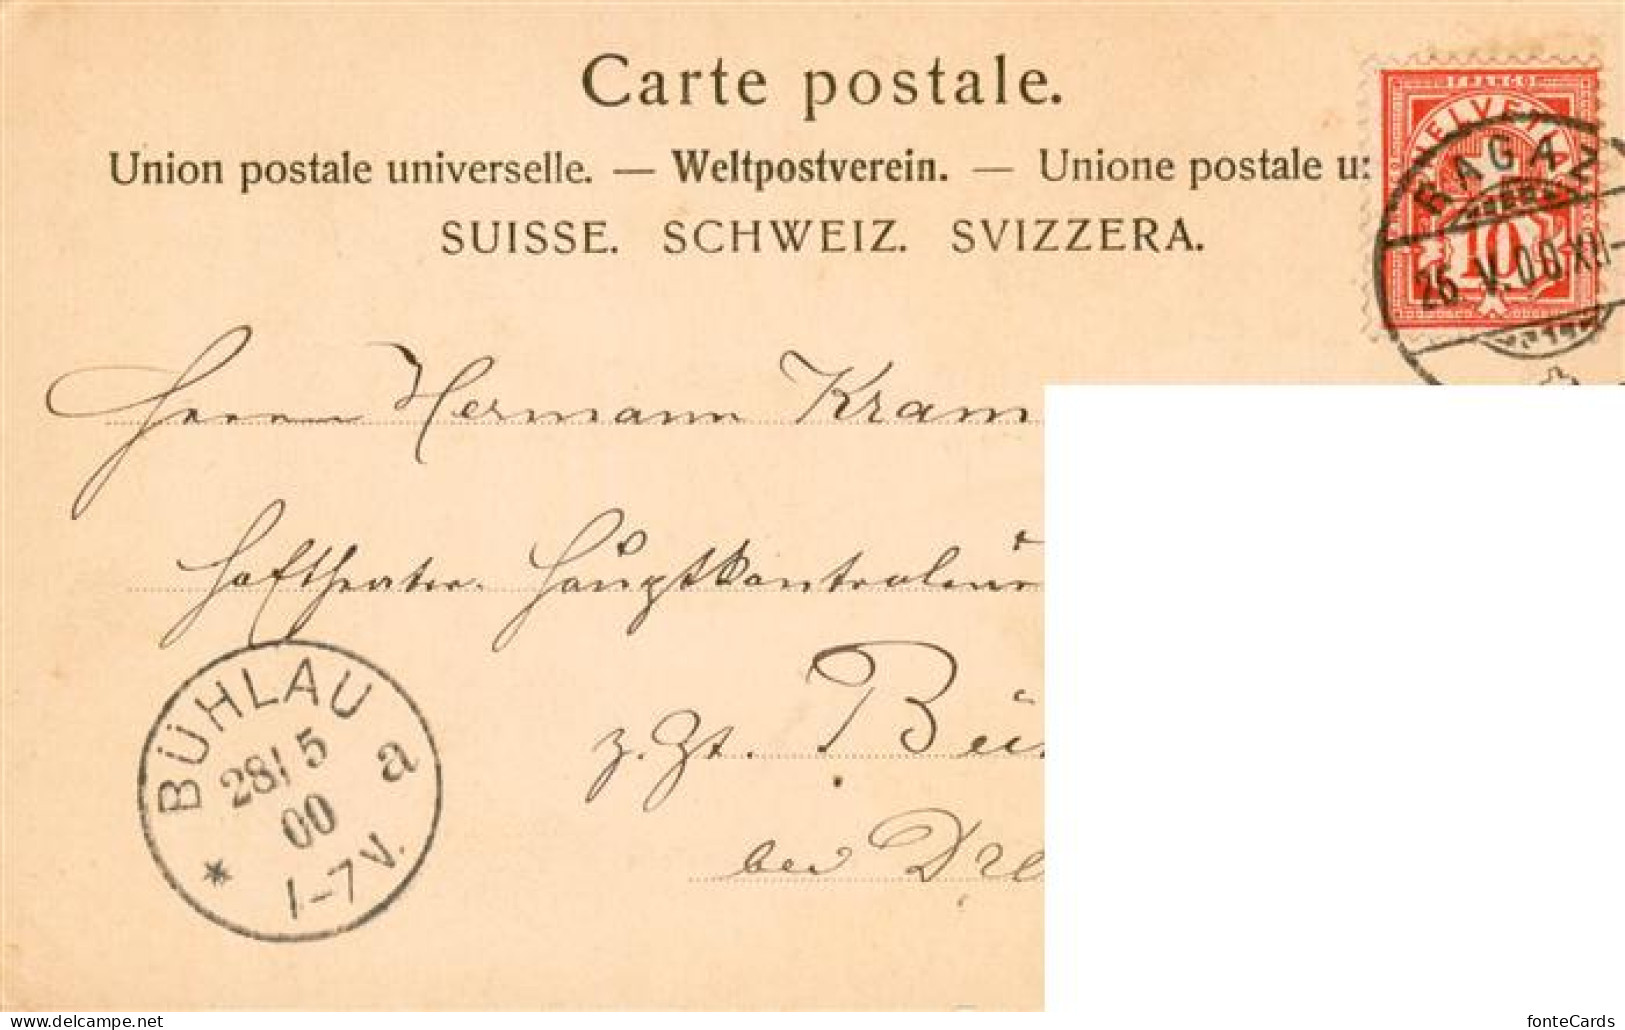 Carte postale.
Union postale universelle. — Weltpostverein. — Unione postale u
SUISSE. SCHWEIZ. SVIZZERA.
FRANCO
HELVETIA
10
RAGAZ
26. V. 00. XII–
Herrn Hermann Kram
Hoftheater- Hauptkontroleur
z. Zt. Bü
bei Dre
BÜHLAU
28/5
00
a
1-7V.
www.delcampe.net
fonteCards